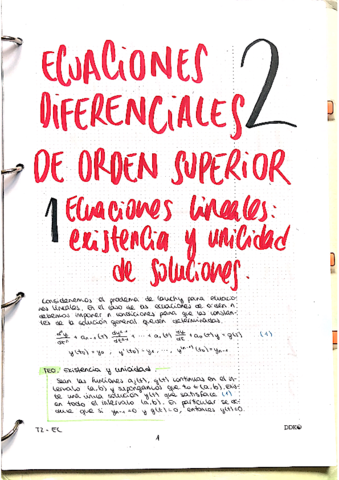 ECUACIONES 2
DIFERENCIALES
DE ORDEN SUPERIOR
1 Ecuaciones lineales:
existencia y unicidad
de soluciones.
Consideremos el problema de Cauchy para ecuacio-
nes lineales. En el caso de las ecuaciones de orden n
debemos imponer n condiciones para que las constan-
tes de la solución general queden determinadas.
y(t₀) = y₀, y'(t₀) = y₀, ..., 
TEO. Existencia y unicidad.
Sean las funciones aⱼ(t), g(t) continuas en el in-
tervalo (a,b) y supongamos que t₀ ∈ (a,b), exis-
te una única solución y(t) que satisface (1)
en todo el intervalo (a,b). En particular se de-
duce que si y₀ = 0 y g(t) = 0, entonces y(t) = 0.
T2 - EC
1
DDK